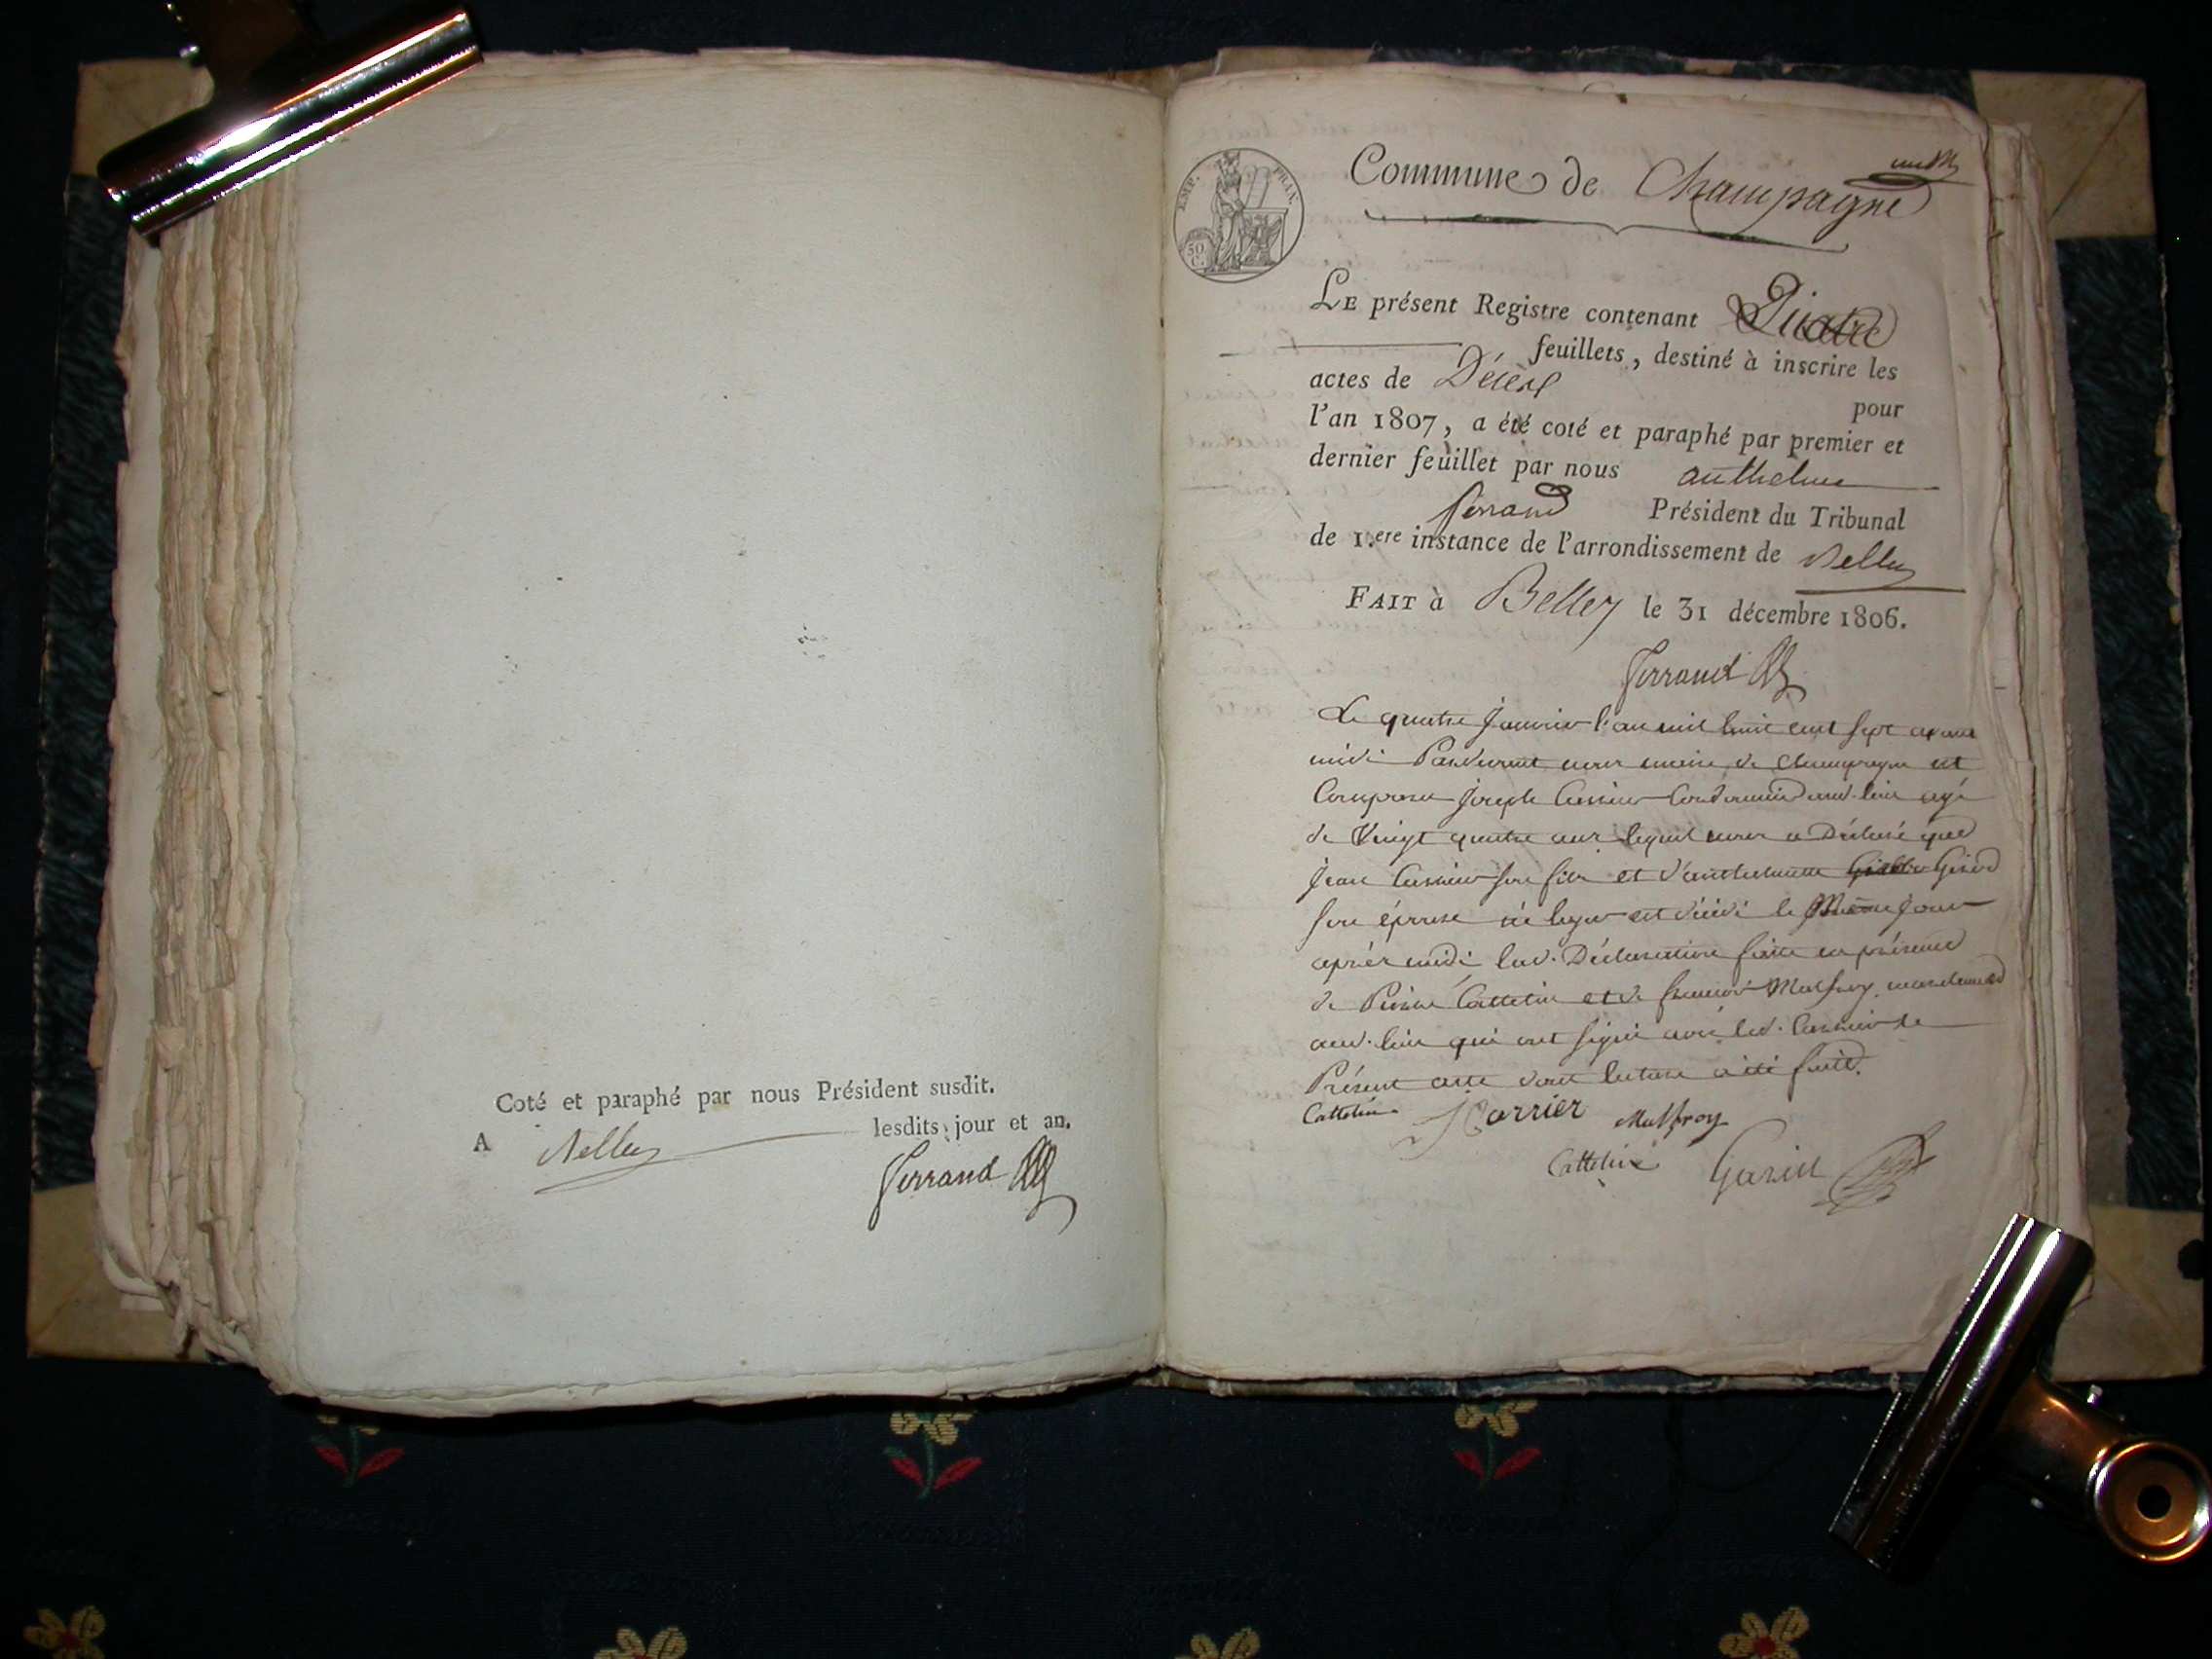 Coté et paraphé par nous Président susdit.
A Belley lesdits jour et an.
Ferrand
EMP. FRAN.
50 C.
Commune de Champagne
LE présent Registre contenant Quatre
feuillets, destiné à inscrire les
actes de Décès pour
l'an 1807, a été coté et paraphé par premier et
dernier feuillet par nous anthelme
ferrand Président du Tribunal
de 1.ere instance de l'arrondissement de Belley
FAIT à Belley le 31 décembre 1806.
Ferrand
Le quatre Janvier l'an mil huit cent sept avant
midi Pardevant nous maire de champagne est
Comparu joseph cordonnier aud. lieu agé
de Vingt quatre ans lequel nous a Déclaré que
jean son fils et d'anthelmette Girod
son épouse est décédé le jour
après midi lad. Déclaration faite en présence
de Cattelin et de françois Malfroy marchand
aud. lieu qui ont signé avec led. le
Présent acte dont lecture a été faite.
Cattelin Carrier Malfroy
Cattelin Garin